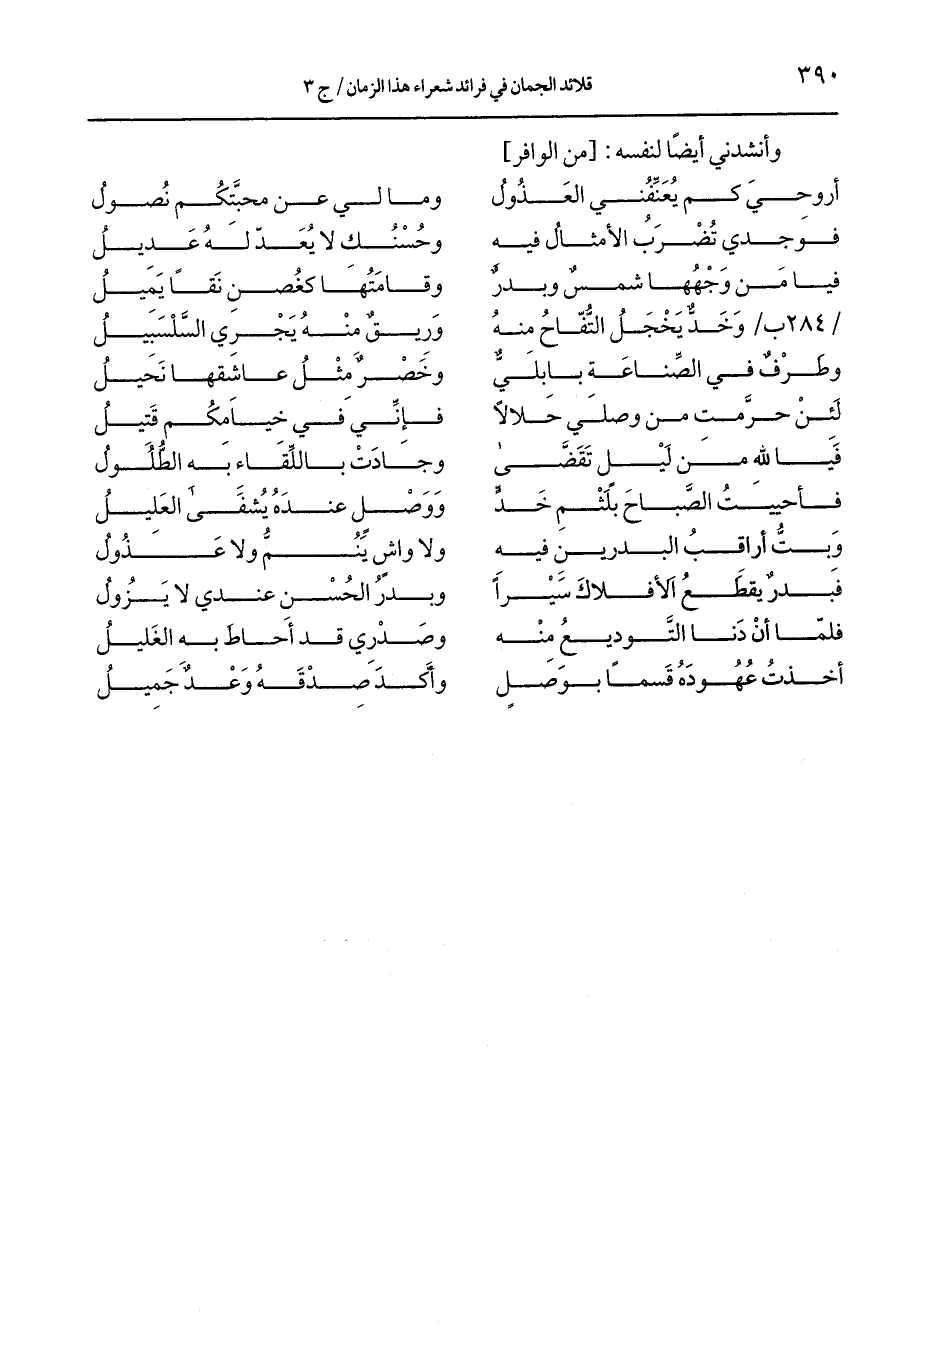 ٣٩٠
قلائد الجمان في فرائد شعراء هذا الزمان/ ج ٣
وأنشدني أيضًا لنفسه: [من الوافر]
أروحيَ كم يُعَنِّفُني العَذُولُ وما لي عن محبَّتكُم نُصولُ
فوجدي تُضْرَبُ الأمثالُ فيه وحُسْنُك لا يُعَدّ لهُ عَديلُ
فيا مَن وَجْهُها شمسٌ وبدرٌ وقامَتُها كغُصنِ نَقًا يَميلُ
/٢٨٤ب/ وَخَدٌّ يَخْجَلُ التُّفّاحُ منهُ وَريقٌ منْهُ يَجْري السَّلْسَبيلُ
وطَرْفٌ في الصِّناعَة بابليٌّ وخَصْرٌ مثْلُ عاشقها نَحيلُ
لَئنْ حرَّمت من وصلي حلالاً فإنِّي في خيامكُم قَتيلُ
فَيا لله من لَيْلٍ تَقَضَّىٰ وجادَتْ باللِّقَاء به الطُّلُولُ
فأحييتُ الصَّباحَ بلَثْمِ خَدٍّ وَوَصْلٍ عندَهُ يُشفَىٰ العَليلُ
وَبتُّ أراقبُ البدرينِ فيه ولا واشٍ يَنُمُّ ولا عَذُولُ
فبَدرٌ يقطَعُ الأفلاكَ سَيْراً وبدرُ الحُسْنِ عندي لا يَزُولُ
فلمّا أنْ دَنا التَّوديعُ منْه وصَدْري قد أَحاطَ به الغَليلُ
أخذتُ عُهُودَهُ قَسمًا بوَصَلٍ وأكَّدَ صِدْقَهُ وَعْدٌ جَميلُ